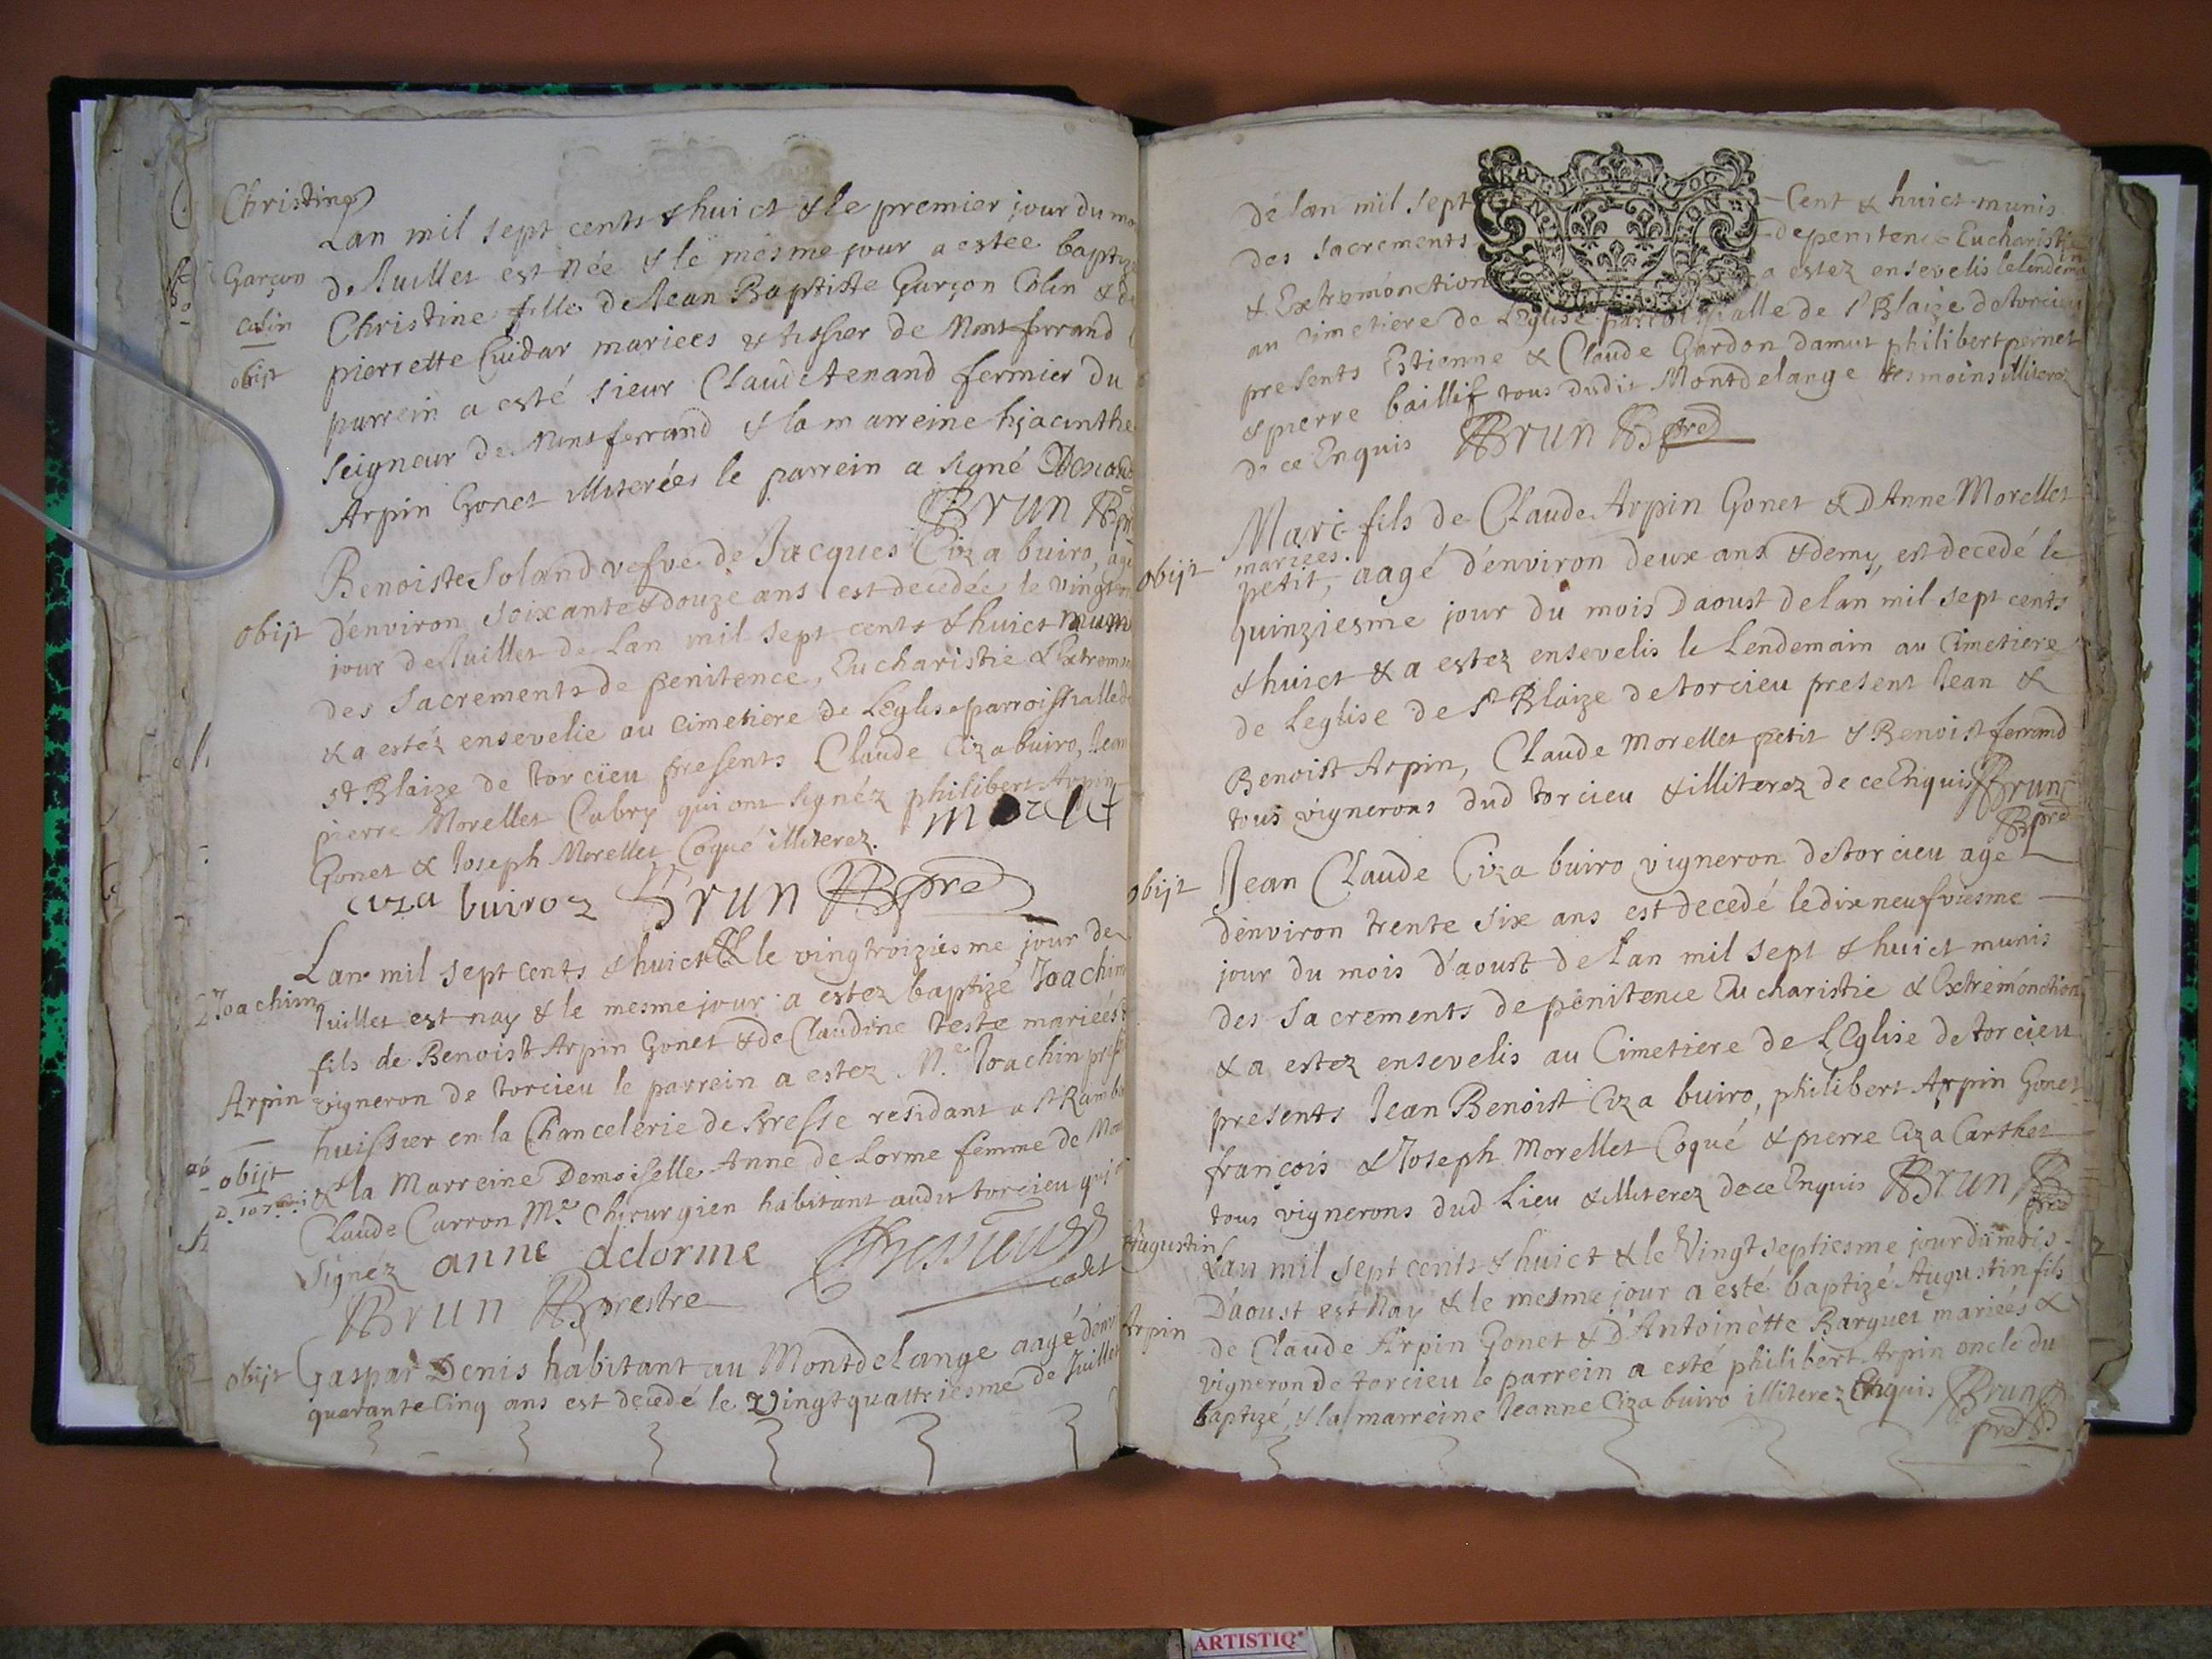 Christine
Lan mil sept cents & huict & le premier jour du
Garçon
de Juillet est née & le mesme jour a estee baptize
Colin
Christine fille de Jean Baptiste Garçon Colin & de
obijt
pierrette Cuidar mariees & tissier de Montferrand
parrein a esté sieur Claude tenand fermier du
seigneur de Montferrand & la marreine hjacinthe
Arpin Gonet illiterées le parrein a signé
Brun
Benoiste Soland vefve de Jacques Ciza buiro,
obijt
d'environ soixante & douze ans est decedée le
jour de Juillet de Lan mil sept cents & huict
des Sacrements de penitence, Eucharistie &
& a estéz ensevelie au cimetiere de LEglise parroissialle de
st Blaize de torcieu presents Claude Ciza buiro, Jean
pierre Morellet Cabry qui ont signéz philibert Arpin
Gonet & Joseph Morellet Coqué illiterez. morelet
ciza buiroz Brun pre
Lan mil sept cents & huict & le vingtroiziesme jour de
Joachim
Juillet est nay & le mesme jour a estez baptizé Joachim
fils de Benoist Arpin Gonet & de Claudine teste mariées
Arpin
vigneron de torcieu le parrein a estez Me Joachin
huissier en la Chancelerie de Bresse residant a St
obijt
& la Marreine Demoiselle Anne de Lorme femme de
Claude Carron Me Chirurgien habitant audit torcieu qui
signéz anne delorme
cadet
Brun prestre
obijt
Gaspar Denis habitant au Montdelange aagé
quarante Cinq ans est decedé le Vingtquattriesme de Juillet
de lan mil sept Cent & huict munis
des Sacrements de penitence Eucharistie
& Extremonction a estez ensevelis
au Cimetiere de LEglise de st Blaize de torcieu
presents Estienne & Claude Gordon damut philibert pernet
& pierre baillif tous dudit Montdelange tesmoins illiterez
de ce Enquis Brun pre
Marc fils de Claude Arpin Gonet & D'Anne Morellet
mariees.
obijt
petit, aagé d'environ deux ans & demy, est decedé le
quinziesme jour du mois Daoust de lan mil sept cents
& huict & a estez ensevelis le Lendemain au Cimetiere
de Leglise de st Blaize de torcieu present Jean &
Benoist Arpin, Claude Morellet petit & Benoist ferrand
tous vignerons dud torcieu & illiterez de ce Enquis Brun
pre
obijt
Jean Claude Ciza buiro vigneron de torcieu age
d'environ trente six ans est decedé le dixneufviesme
jour du mois d'aoust de Lan mil sept & huict munis
des Sacrements de penitence Eucharistie & Extremonction
& a estez ensevelis au Cimetiere de LEglise de torcieu
presents Jean Benoist Ciza buiro, philibert Arpin Gonet
françois & Joseph Morellet Coqué & pierre Ciza Carthet
tous vignerons dud Lieu & illiterez de ce Enquis Brun
pre
Augustin
Lan mil sept cents & huict & le Vingtseptiesme jour du mois
D'aoust est Nay & le mesme jour a esté baptizé Augustin fils
Arpin
de Claude Arpin Gonet & D'Antoinette Barquet mariées &
vigneron de torcieu le parrein a esté philibert Arpin oncle du
baptizé, & la marreine Jeanne Ciza buiro illiterez Enquis Brun
pre
ARTISTIQ